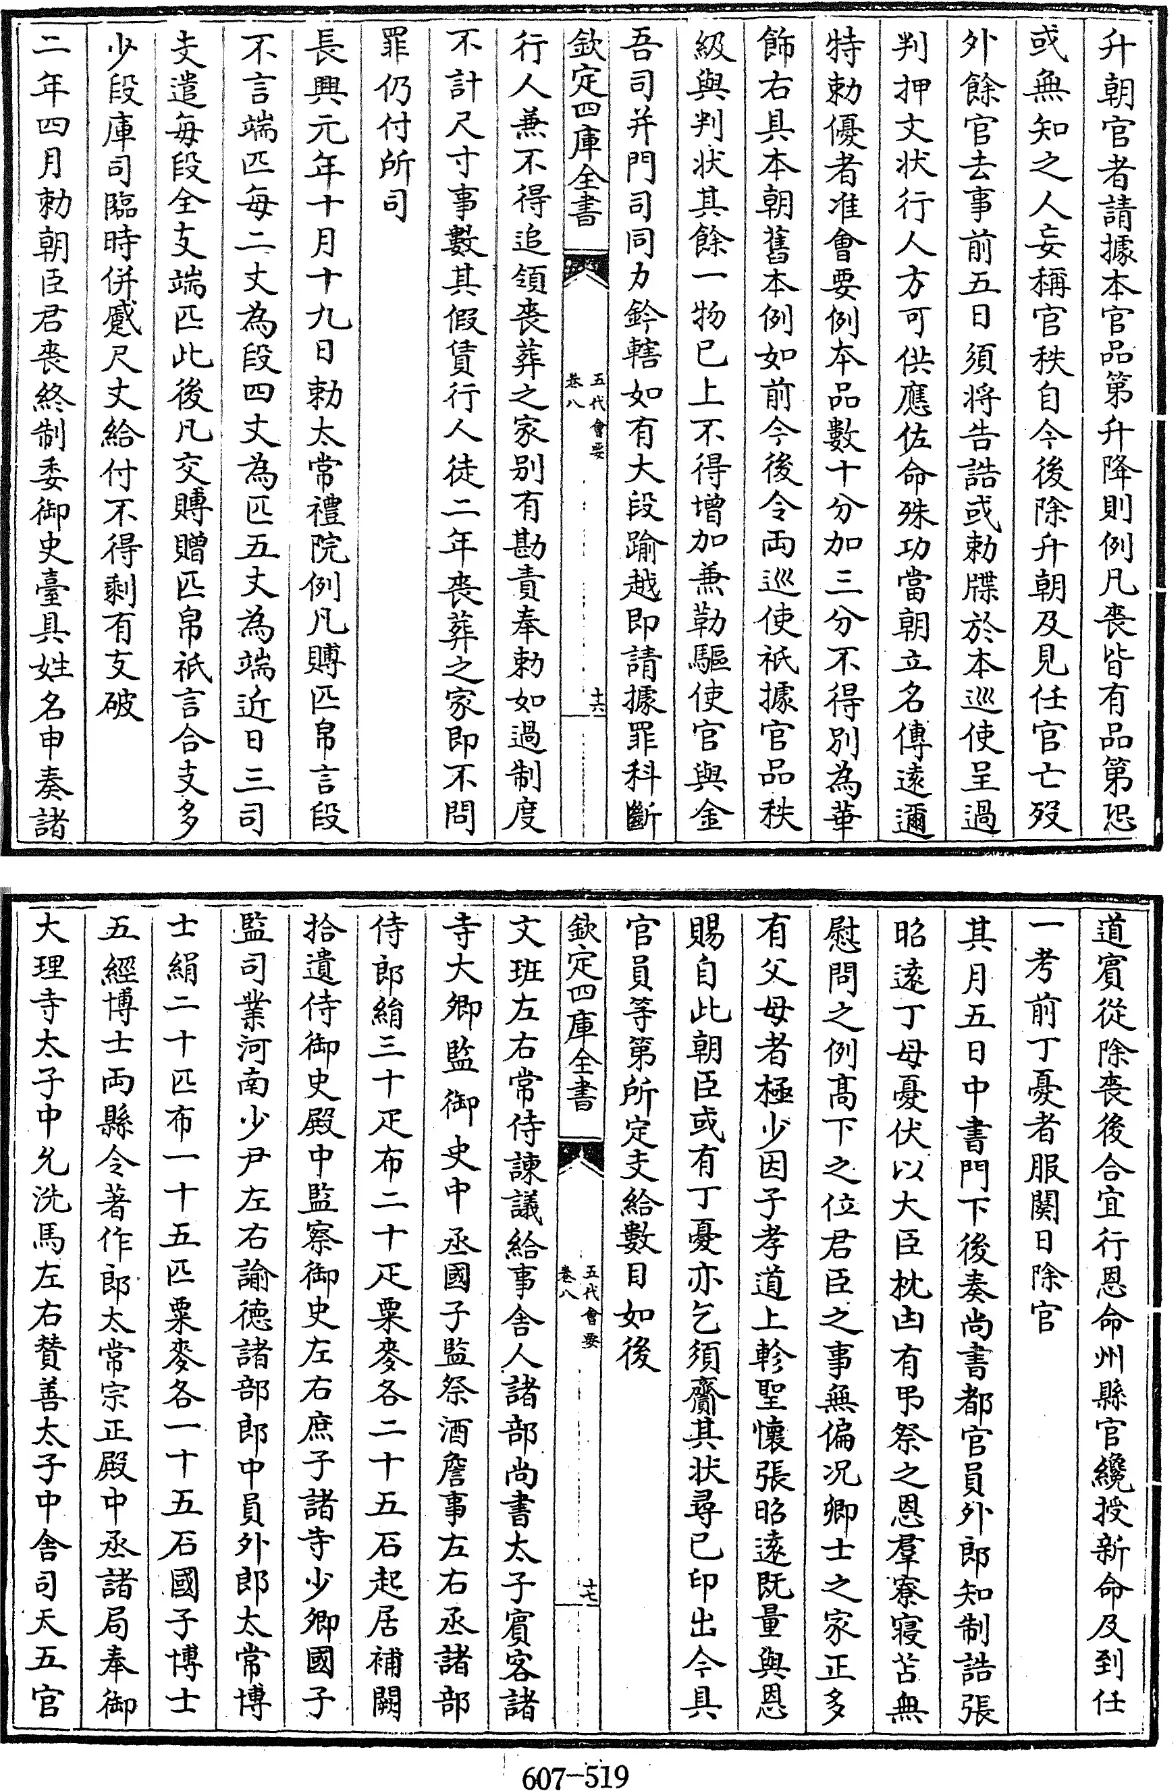 升朝官者請據本官品第升降則例凡喪皆有品第恐
或無知之人妄稱官秩自今後除升朝及見任官亡歿
外餘官去事前五日須將告誥或勅牒於本巡使呈過
判押文狀行人方可供應佐命殊功當朝立名傳遠邇
特勅優者准會要例本品數十分加三分不得別為華
飾右具本朝舊本例如前今後令兩巡使祇據官品秩
級與判狀其餘一物已上不得增加兼勒驅使官與金
吾司并門司同力鈐轄如有大段踰越即請據罪科斷
欽定四庫全書
五代會要
卷八
十六
行人兼不得追領喪葬之家別有勘責奉勅如過制度
不計尺寸事數其假賃行人徒二年喪葬之家即不問
罪仍付所司
長興元年十月十九日勅太常禮院例凡賻匹帛言段
不言端匹每二丈為段四丈為匹五丈為端近日三司
支遣每段全支端匹此後凡交賻贈匹帛祇言合支多
少段庫司臨時併蹙尺丈給付不得剩有支破
二年四月勅朝臣君喪終制委御史臺具姓名申奏諸
道賓從除喪後合宜行恩命州縣官纔授新命及到任
一考前丁憂者服闋日除官
其月五日中書門下後奏尚書都官員外郎知制誥張
昭遠丁母憂伏以大臣枕凷有弔祭之恩羣寮寢苫無
慰問之例髙下之位君臣之事無偏况卿士之家正多
有父母者極少因子孝道上軫聖懷張昭遠既量與恩
賜自此朝臣或有丁憂亦乞須齎其狀尋已印出今具
官員等第所定支給數目如後
欽定四庫全書
五代會要
卷八
十七
文班左右常侍諫議給事舍人諸部尚書太子賓客諸
寺大卿監御史中丞國子監祭酒詹事左右丞諸部
侍郎絹三十疋布二十疋粟麥各二十五石起居補闕
拾遺侍御史殿中監察御史左右庶子諸寺少卿國子
監司業河南少尹左右諭德諸部郎中員外郎太常博
士絹二十匹布一十五匹粟麥各一十五石國子博士
五經博士兩縣令著作郎太常宗正殿中丞諸局奉御
大理寺太子中允洗馬左右賛善太子中舍司天五官
607-519